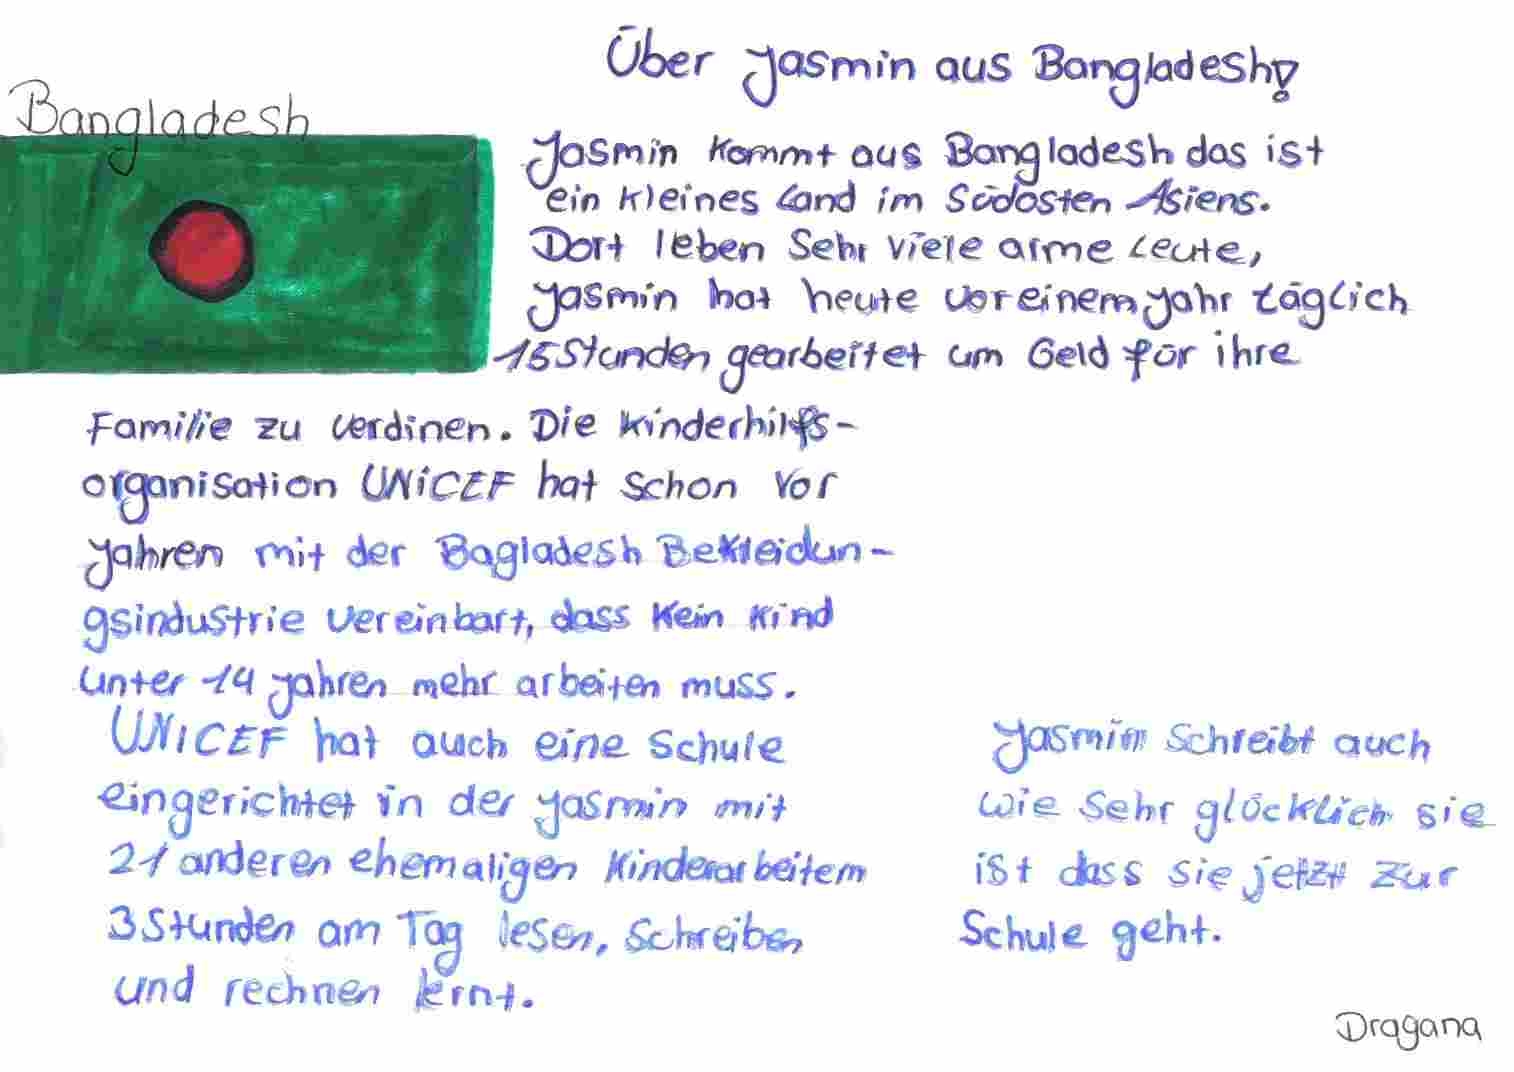 Über Jasmin aus Bangladesh!
Bangladesh
Jasmin kommt aus Bangladesh das ist
ein kleines Land im Südosten Asiens.
Dort leben Sehr viele arme Leute,
Jasmin hat heute vor einem Jahr täglich
15 Stunden gearbeitet um Geld für ihre
Familie zu verdinen. Die Kinderhilfs-
organisation UNiCEF hat schon vor
Jahren mit der Bagladesh Bekleidun-
gsindustrie vereinbart, dass kein kind
unter 14 Jahren mehr arbeiten muss.
UNICEF hat auch eine Schule
eingerichtet in der Jasmin mit
21 anderen ehemaligen Kinderarbeitern
3 Stunden am Tag lesen, schreiben
und rechnen lernt.
Jasmin schreibt auch
wie sehr glücklich sie
ist dass sie jetzt zur
Schule geht.
Dragana